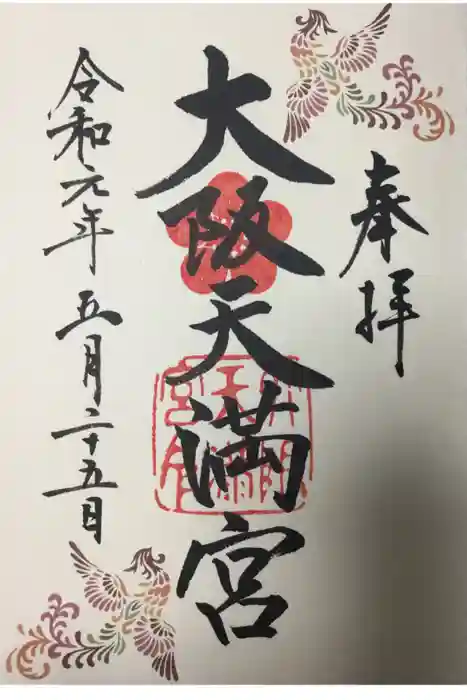 奉拝
大阪天満宮
令和元年五月二十五日